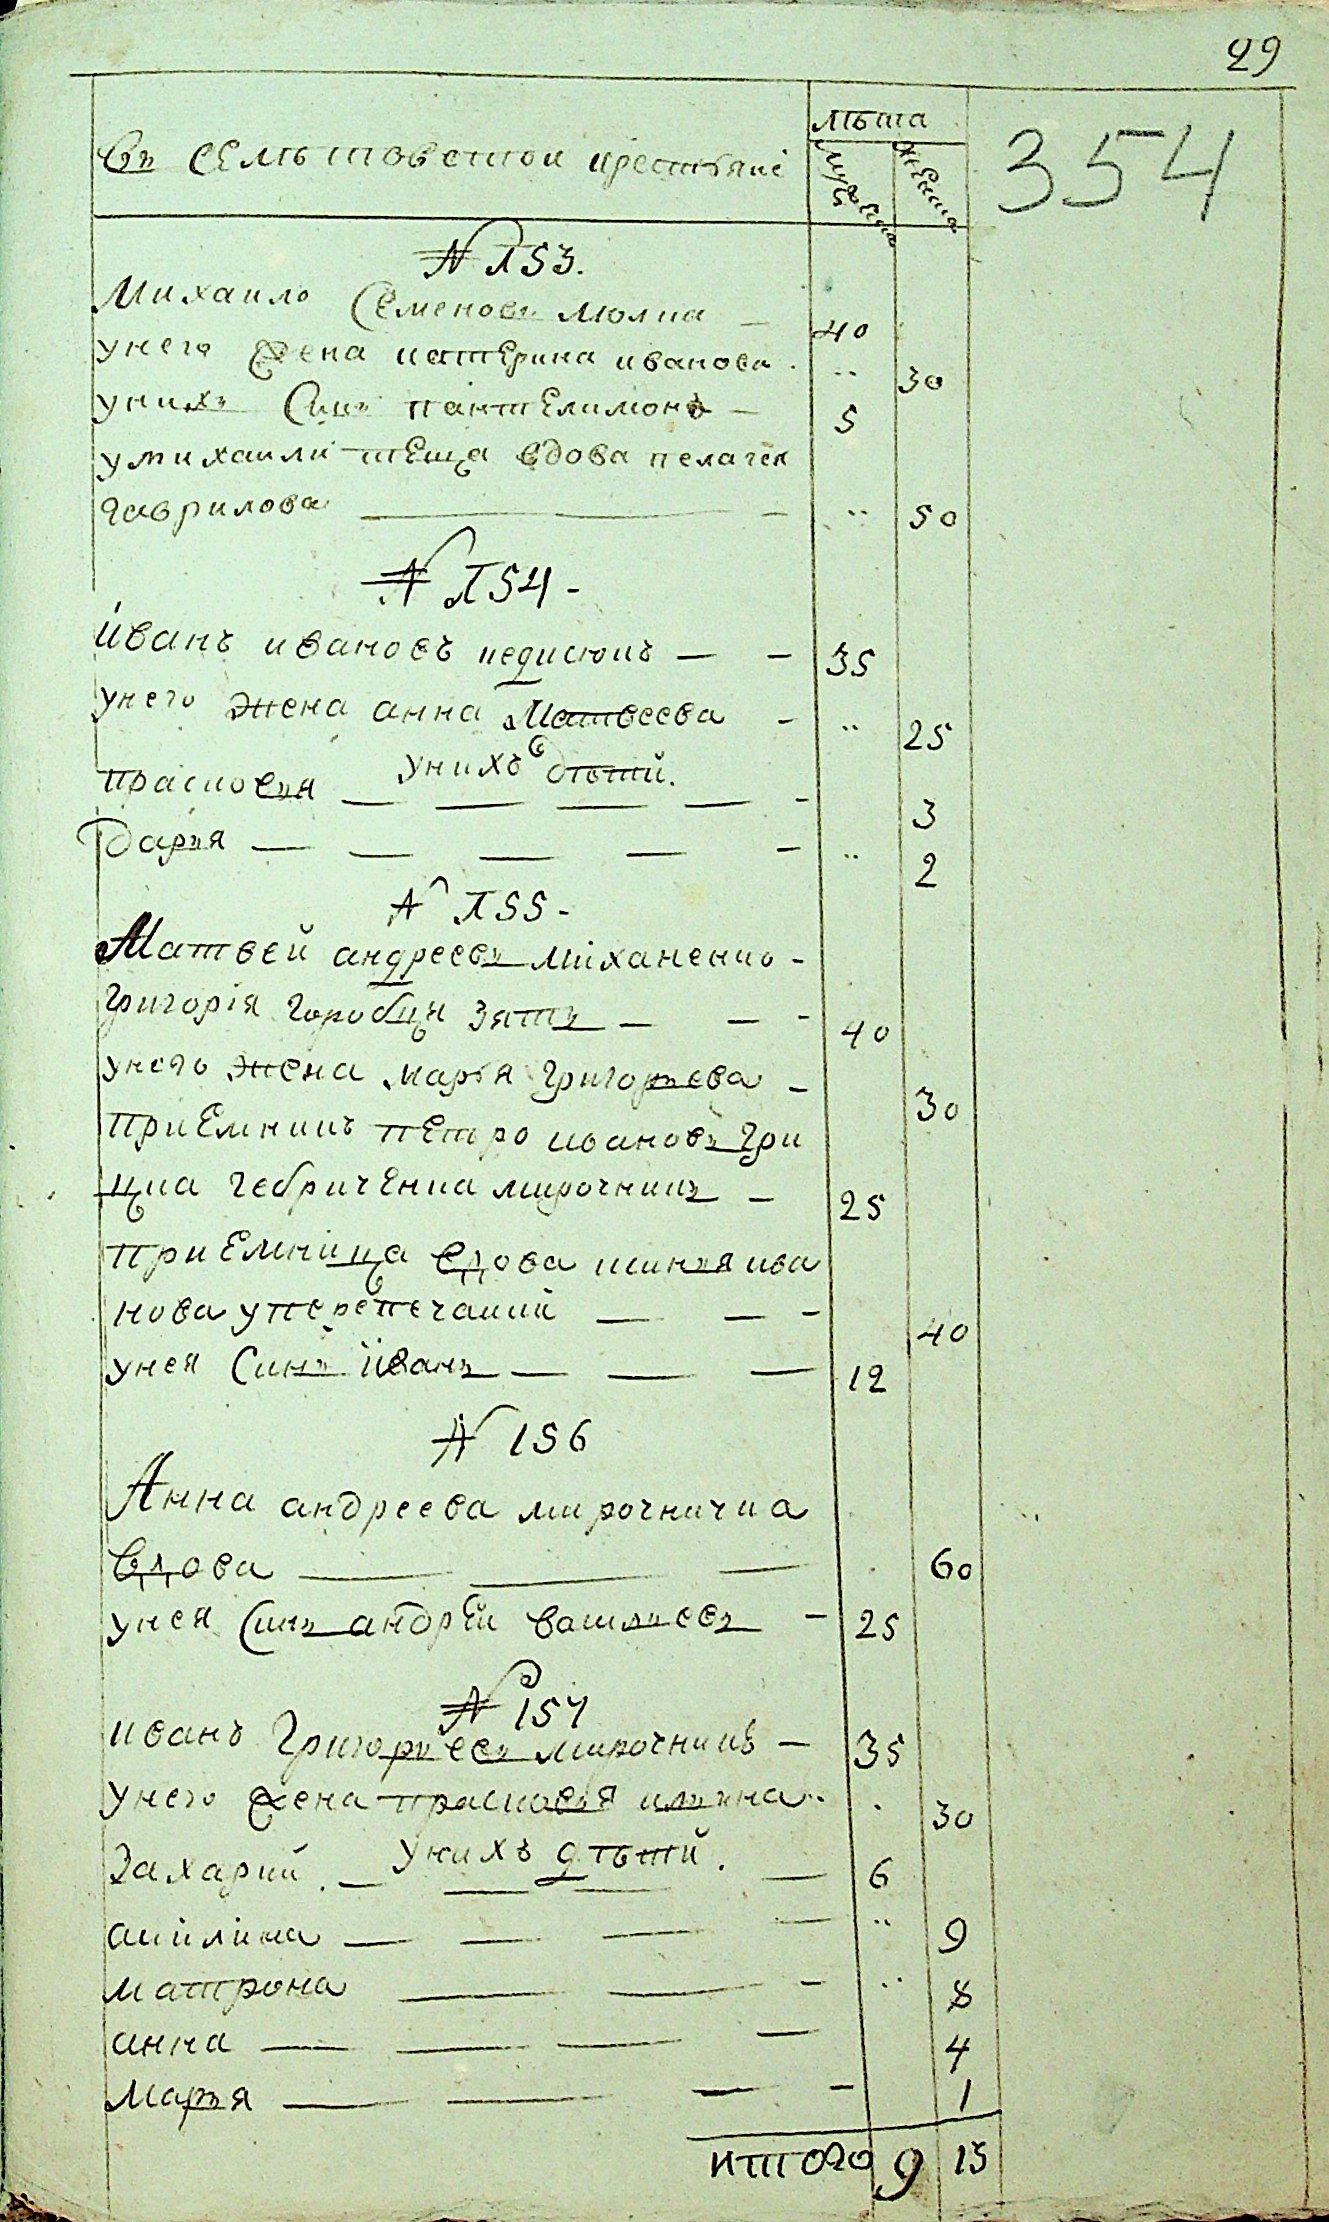 29
Въ семъ местечки крестьяне
лѣта
мужеска
женска
354
N 153.
Михаило Семеновъ Мюлка — 40
унего жена катерина иванова .. 30
унихъ Синъ пантелимонъ — 5
умихаили теща вдова пелагея
гаврилова — .. 50
N 154 -
Иванъ ивановъ недисюкъ — 35
унего жена анна Матвеева - .. 25
унихъ дѣтей.
прасковия — 3
дария — .. 2
N 155 -
Матвей андреевъ міханенко -
григорія горобця зять — 40
унего жена марья григорьева - 30
приемникъ петро ивановъ гри
цка мирочникъ — 25
приемница вдова ива
нова — 40
унея Синъ Иванъ — 12
N 156
Анна андреева мирочничка
вдова — 60
унея Синъ андрей васильевъ - 25
N 157
иванъ григорьевъ мирочникъ — 35
унего жена прасковия ильина .. 30
унихъ дѣтей.
Захарий — 6
акилина — .. 9
матрона — .. 8
анна — 4
Марья — 1
итого 9 13